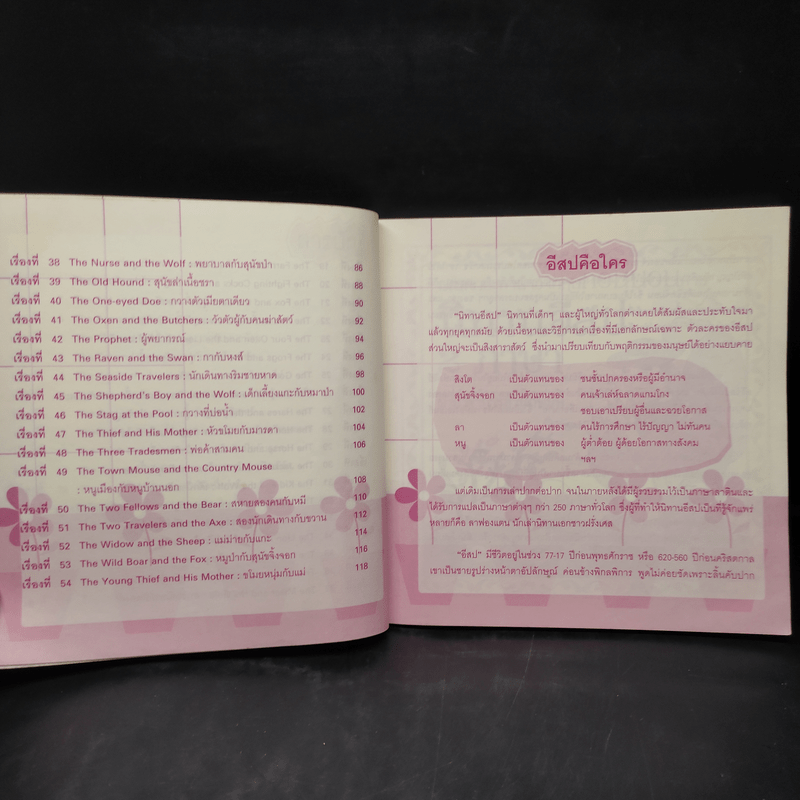 เรื่องที่ 38 The Nurse and the Wolf : พยาบาลกับสุนัขป่า 86
เรื่องที่ 39 The Old Hound : สุนัขล่าเนื้อชรา 88
เรื่องที่ 40 The One-eyed Doe : กวางตัวเมียตาเดียว 90
เรื่องที่ 41 The Oxen and the Butchers : วัวตัวผู้กับคนฆ่าสัตว์ 92
เรื่องที่ 42 The Prophet : ผู้พยากรณ์ 94
เรื่องที่ 43 The Raven and the Swan : กากับหงส์ 96
เรื่องที่ 44 The Seaside Travelers : นักเดินทางริมชายหาด 98
เรื่องที่ 45 The Shepherd's Boy and the Wolf : เด็กเลี้ยงแกะกับหมาป่า 100
เรื่องที่ 46 The Stag at the Pool : กวางที่บ่อน้ำ 102
เรื่องที่ 47 The Thief and His Mother : หัวขโมยกับมารดา 104
เรื่องที่ 48 The Three Tradesmen : พ่อค้าสามคน 106
เรื่องที่ 49 The Town Mouse and the Country Mouse
: หนูเมืองกับหนูบ้านนอก 108
เรื่องที่ 50 The Two Fellows and the Bear : สหายสองคนกับหมี 110
เรื่องที่ 51 The Two Travelers and the Axe : สองนักเดินทางกับขวาน 112
เรื่องที่ 52 The Widow and the Sheep : แม่ม่ายกับแกะ 114
เรื่องที่ 53 The Wild Boar and the Fox : หมูป่ากับสุนัขจิ้งจอก 116
เรื่องที่ 54 The Young Thief and His Mother : ขโมยหนุ่มกับแม่ 118
อีสปคือใคร
"นิทานอีสป" นิทานที่เด็กๆ และผู้ใหญ่ทั่วโลกต่างเคยได้สัมผัสและประทับใจมา
แล้วทุกยุคทุกสมัย ด้วยเนื้อหาและวิธีการเล่าเรื่องที่มีเอกลักษณ์เฉพาะ ตัวละครของอีสป
ส่วนใหญ่จะเป็นสิงสาราสัตว์ ซึ่งนำมาเปรียบเทียบกับพฤติกรรมของมนุษย์ได้อย่างแยบคาย
สิงโต เป็นตัวแทนของ ชนชั้นปกครองหรือผู้มีอำนาจ
สุนัขจิ้งจอก เป็นตัวแทนของ คนเจ้าเล่ห์ฉลาดแกมโกง
ชอบเอาเปรียบผู้อื่นและฉวยโอกาส
ลา เป็นตัวแทนของ คนไร้การศึกษา ไร้ปัญญา ไม่ทันคน
หนู เป็นตัวแทนของ ผู้ต่ำต้อย ผู้ด้อยโอกาสทางสังคม
ฯลฯ
แต่เดิมเป็นการเล่าปากต่อปาก จนในภายหลังได้มีผู้รวบรวมไว้เป็นภาษาลาตินและ
ได้รับการแปลเป็นภาษาต่างๆ กว่า 250 ภาษาทั่วโลก ซึ่งผู้ที่ทำให้นิทานอีสปเป็นที่รู้จักแพร่
หลายก็คือ ลาฟองแตน นักเล่านิทานเอกชาวฝรั่งเศส
"อีสป" มีชีวิตอยู่ในช่วง 77-17 ปีก่อนพุทธศักราช หรือ 620-560 ปีก่อนคริสตกาล
เขาเป็นชายรูปร่างหน้าตาอัปลักษณ์ ค่อนข้างพิกลพิการ พูดไม่ค่อยชัดเพราะลิ้นคับปาก